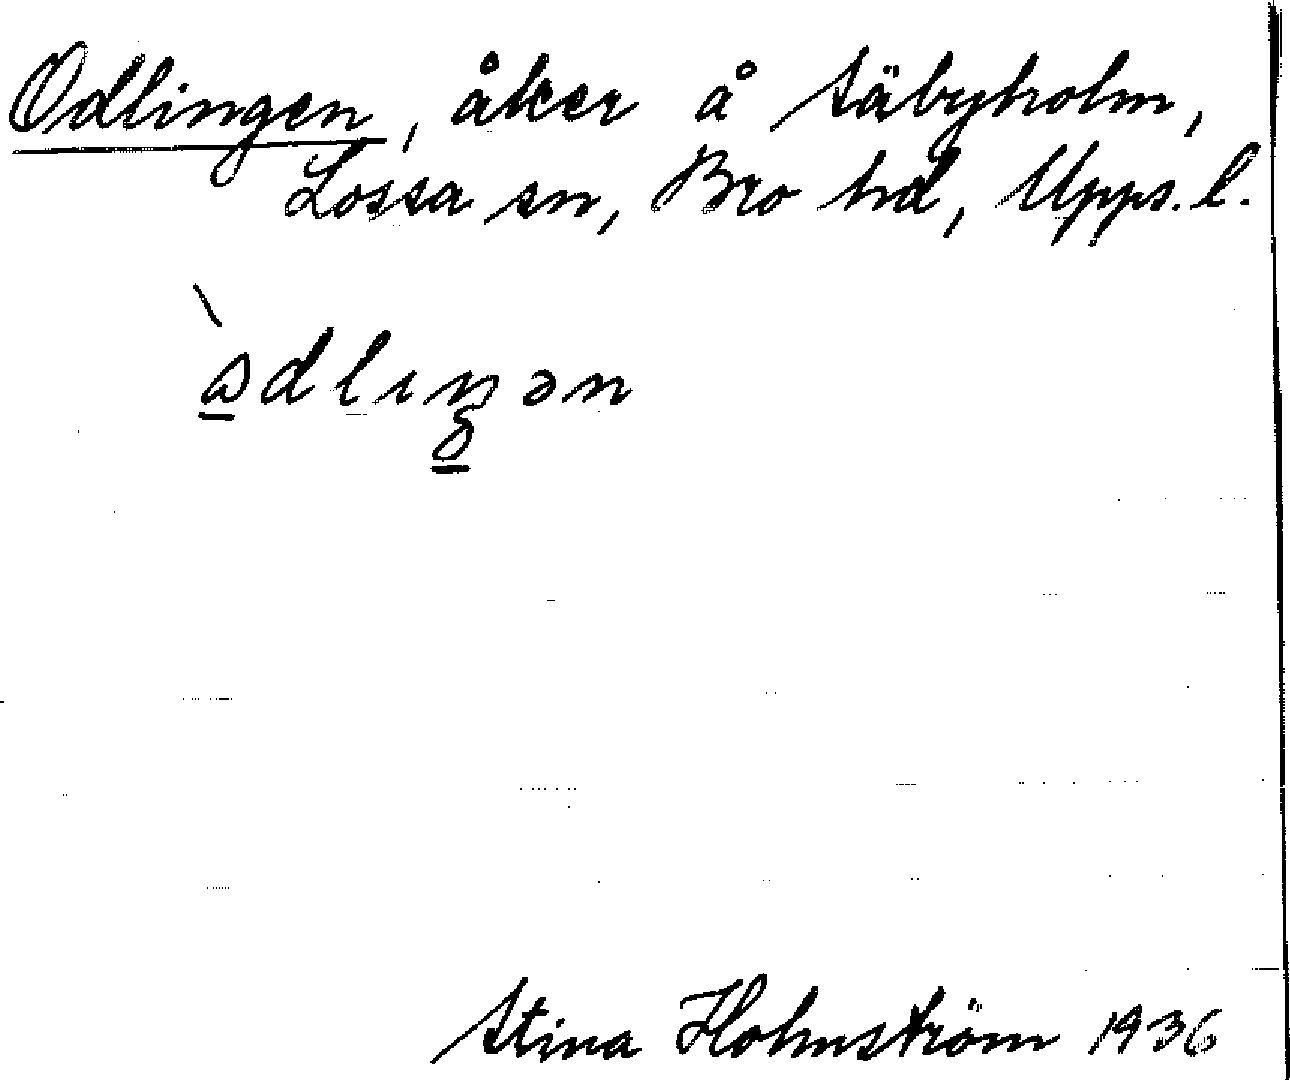 Odlingen, åker å Säbyholm,
Lossa sn, Bro hd, Upps. l.
Stina Holmström 1936